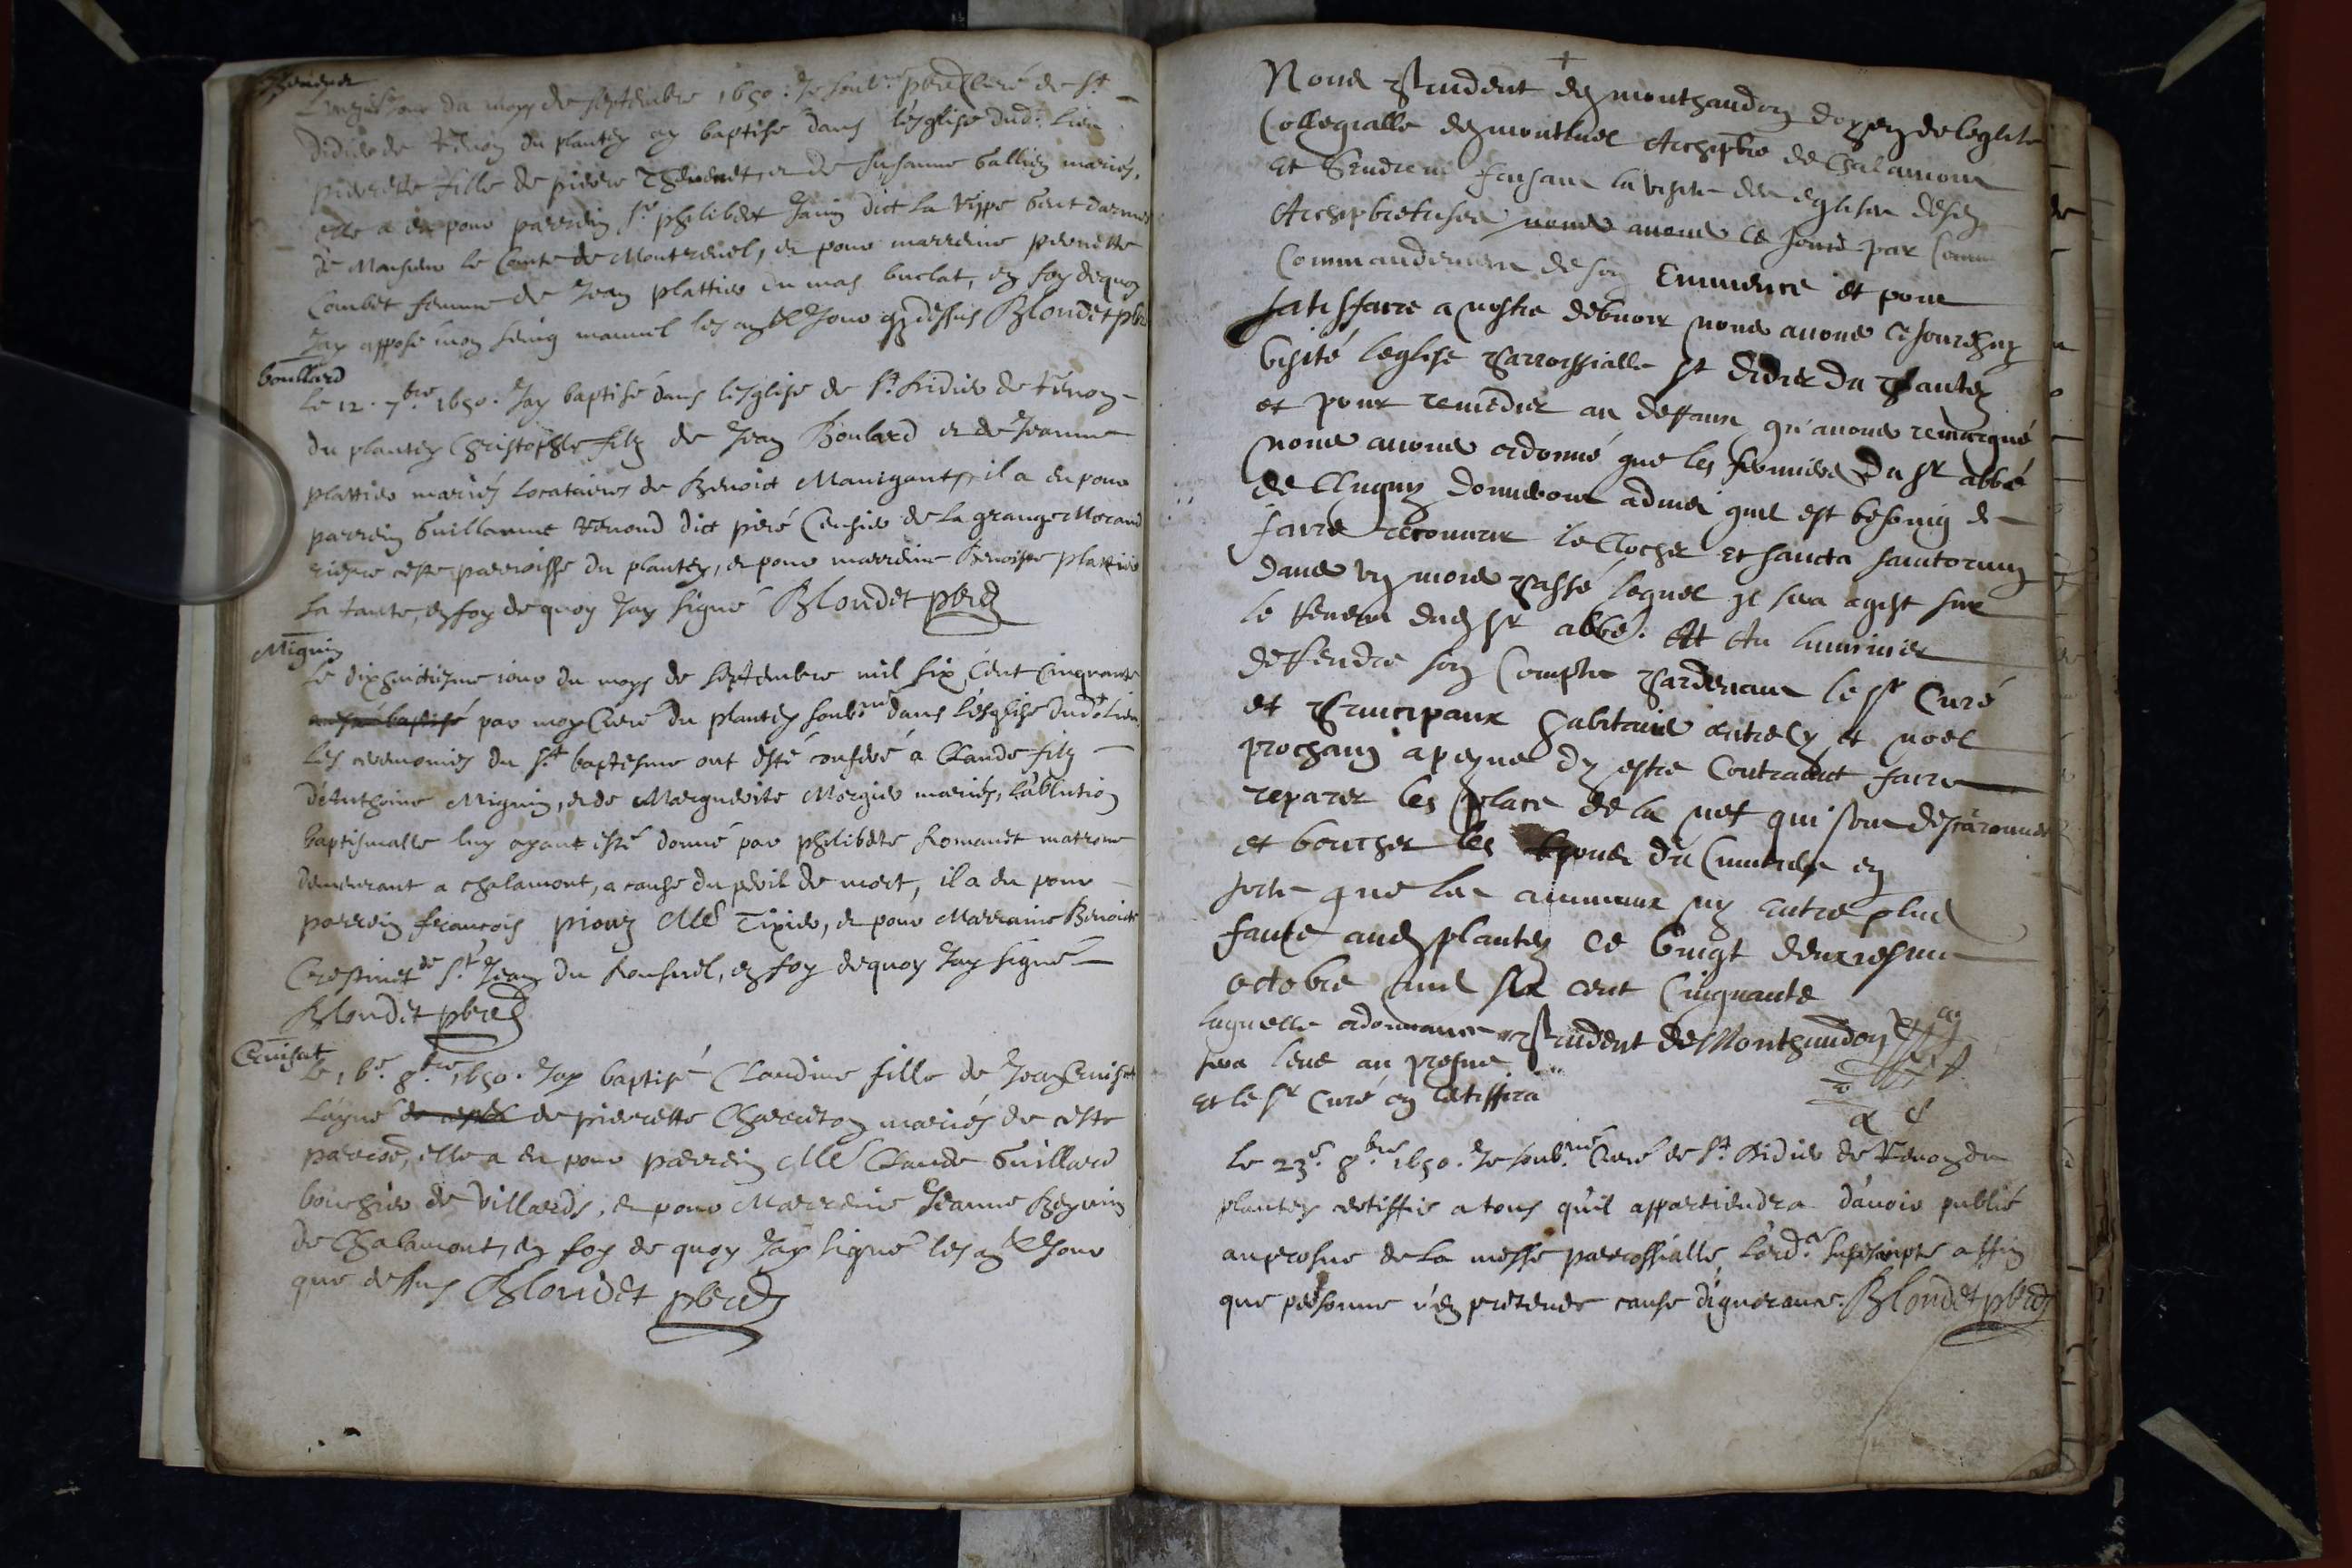 Thevenet
jour du moys de septembre 1650. Je soub.né pbre Curé de St
didier de Renon du plantey ay baptisé dans l'esglise dud. lieu
pierrette fille de pierre Thevenet, et de susanne Gallien mariés,
elle a eu pour parrein sr philibert Janin dict la Rippe Gent darmes
de Monsieur le Comte de Montrevel, et pour marreine pernette
Combet femme de Jean plattier du mas buclat, en foy dequoy
Jay apposé mon seing manuel les an & Jour que dessus Blondet pbre
boullard
Le 12. 7.bre 1650. Jay baptisé dans lesglise de St. Didier de Renon
du plantey Christophle filz de Jean Boulard et de Jeanne
plattier mariés locataires de Benoict Manigant, il a eu pour
parrein Guillaume Renond dict piré Censier de la grange Morand
riere ceste parroisse du plantey, et pour marreine Benoiste plattier
sa tante, en foy de quoy Jay signé Blondet pbre
Mignin
Le dixhuictiesme iour du moys de septembre mil six Cent Cinquante
par moy Curé du plantey soub.né dans l'esglise dud. Lieu
les ceremonies du St. baptesme ont esté conferé a Claude filz
d'Anthoine Mignin, et de Marguerite Mergier mariés, L'ablution
baptismalle luy ayant esté donné par philiberte Romanet matrone
demeurant a chalamont, a cause du peril de mort, il a eu pour
parrein françois Mre Tixier, et pour Marraine Benoiste
de St. Jean du en foy dequoy Jay signé
Blondet pbre
Cruisat
Le 16e. 8.bre 1650. Jay baptisé Claudine fille de Jean Cruisat
Layné de pierrette Charreton mariés de ceste
parroisse, elle a eu pour parrein Mre Claude Guillard
bouchier de Villards, et pour Marreine Jeanne Beguin
de Chalamont, en foy de quoy Jay signé les an & Jour
que dessus Blondet pbre
+
Nous Prudent de monthaudon doyen de leglise
Collegialle de montluel Archiptre de Chalamont
et faisant la visite des eglises desd.
Archiptretusés nous avons ce jourd par
Commandement de son Eminence et pour
satisfaire a nostre debvoir nous avons ce jourdhuy
visité leglise Parrossialle St didier du Plantey
et pour remedier au deffaux qu'avons remarqué
nous avons ordonné que les fermiers du Sr abbé
de Clugny donneront advis quil est besoing de
faire recouvrir le Clocher et sancta santorum
dans un mois Passé lequel Il sera agist sur
le Revenu dud Sr abbé. Et Au luminier
de Rendre son Compte Pardevant le Sr Curé
et Principaux habitans entre Cy et noel
prochain a peyne dy estre Contraint faire
reparer les place de la nef qui sont descaronnés
et boucher les du Cimitiere en
sorte que les animaux ny entre plus
faict aud plantey ce vingt deuxiesme
octobre mil six cent Cinquante
laquelle ordonnance Prudent de Monthaudon
sera leue au prosne
et le Sr Curé en Certiffira
Le 23e. 8.bre 1650. Je soub.né Curé de St. Didier de Renon du
plantey certiffie a tous qu'il appartiendra d'avoir publié
au prosne de la messe parrossialle, l'ord.ce susescripte affin
que personne n'en pretende cause d'ignorance. Blondet pbre